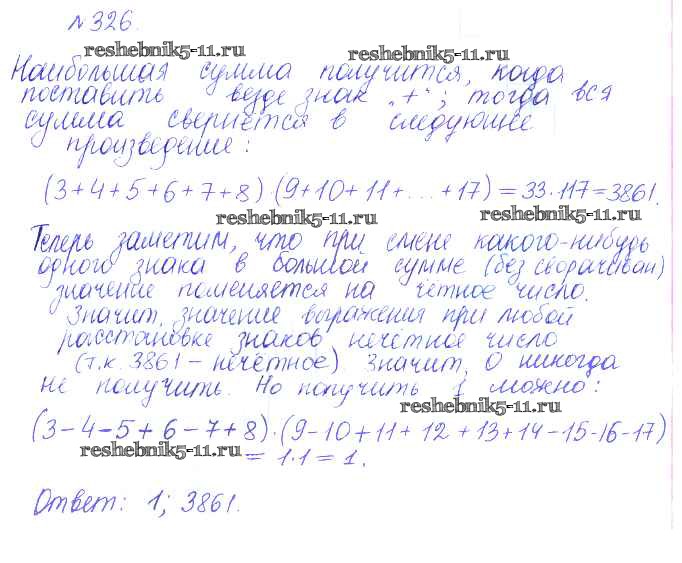 №326.
reshebnik5-11.ru reshebnik5-11.ru
Наибольшая сумма получится, когда
поставить везде знак „+“; тогда вся
сумма свернётся в следующее
произведение:
(3+4+5+6+7+8)·(9+10+11+...+17)=33·117=3861.
reshebnik5-11.ru reshebnik5-11.ru
Теперь заметим, что при смене какого-нибудь
одного знака в большой сумме (без сворачиван)
значение поменяется на чётное число.
Значит, значение выражения при любой
расстановке знаков нечётное число
(т.к. 3861 – нечётное) Значит, 0 никогда
не получить. Но получить 1 можно:
reshebnik5-11.ru
(3-4-5+6-7+8)·(9-10+11+12+13+14-15-16-17)
reshebnik5-11.ru
= 1·1=1.
Ответ: 1; 3861.